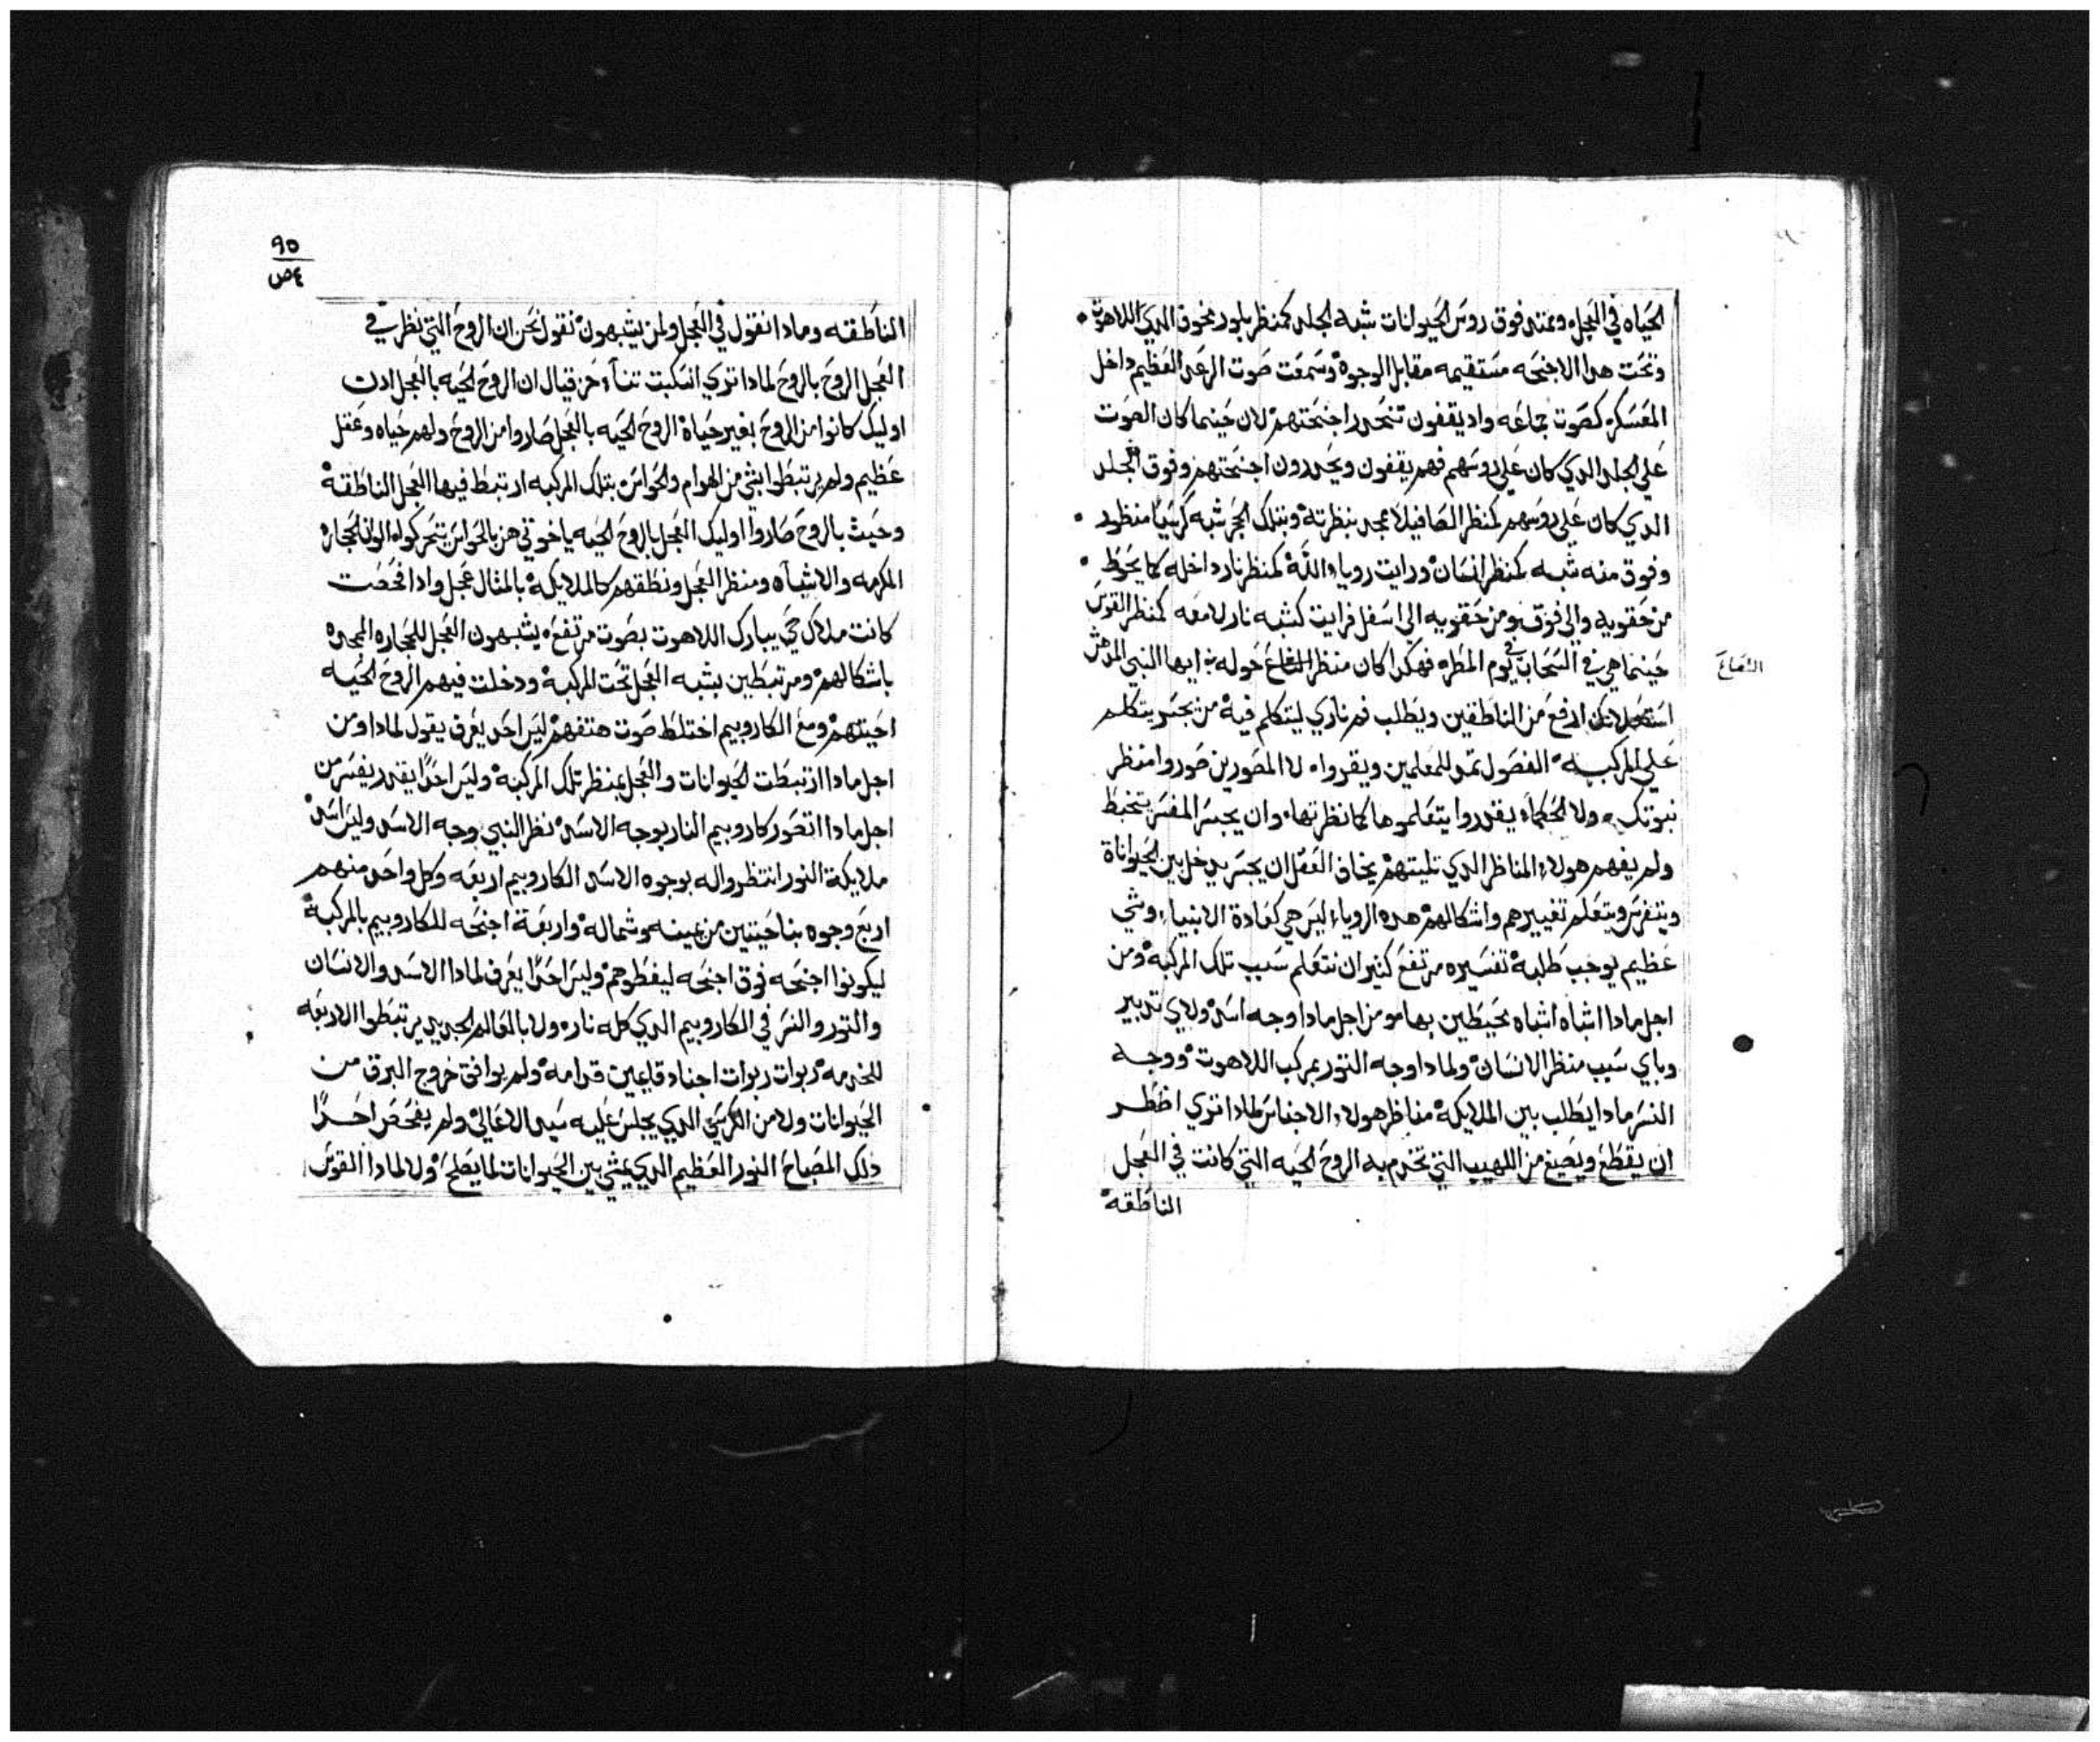 الحياه في العجل وعتد فوق روس الحيوانات شبه الجلد كمنظر بلور مخوف الدي اللاهوت
وتحت هدا الاجنحه مستقيمه مقابل الوجوه وسمعت صوت الرعد العظيم داخل
المعسكر كصوت جماعه واد يقفون تنحدر اجنحتهم لان حينما كان الصوت
علي الجلد الدي كان علي روسهم فهم يقفون ويحدرون اجنحتهم وفوق الجلد
الدي كان علي روسهم كمنظر الصافيلا بمجد بنظرته وبتلك الحجر شبه كرسيا منظور
وفوق منه شبه كمنظر انسان ورايت روياء الله كمنظر نار داخله كما يحوط
من حقويه والي فوق ومن حقويه الي اسفل فرايت كشبه نار لامعه كمنظر القوس
حينما هي في السحاب في يوم المطر فهكدا كان منظر الشعاع حوله ايها النبي المدهش
الشعاع
استعجل لانك ارفع من الناطقين ويطلب فم ناري ليتكلم فيه من يجسر يتكلم
علي المركبه الفصول تمد للمعلمين ويقرواه لا المصورين صوروا منظر
نبوتك ولا الحكماء يقدروا يتعلموها كما نظرتها وان يجسر المفسر يتخبط
ولم يفهم هولاء المناظر الدي تليتهم يخاف العقل ان يجسر يدخل بين الحيواناة
ويتفرس ويتعلم تغييرهم واشكالهم هده الروياء ليس هي كعادة الانبياء وشي
عظيم يوجب طلبه تفسيره مرتفع كثير ان نتعلم سبب تلك المركبه ومن
اجل مادا اشباه اشباه محيطين بها ومن اجل مادا وجه اسد ولاي تدبير
وباي سبب منظر الانسان ولمادا وجه التور بمركب اللاهوت ووجه
النسر مادا يطلب بين الملايكه مناظر هولاء الاجناس لمادا تري اضطر
ان يقطع ويصيغ من اللهيب التي تخدم به الروح الحيه التي كانت في العجل
الناطقه
٩٥
الناطقه ومادا نقول في العجل ولمن يشبهون نقول نحن ان الروح التي نظر في
العجل الروح بالروح لمادا تري انسكبت حزقيال ان الروح الحيه بالعجل ادن
اوليك كانوا من الروح بغير حياة الروح الحيه بالعجل صاروا من الروح ولهم حياه وعقل
عظيم ولم يرتبطوا بشي من الهوام والحواس بتلك المركبه ارتبط فيها العجل الناطقه
وحيث بالروح صاروا اوليك العجل بالروح الحيه ياخوتي هن بالحواس يتحركوا الوان الحجاره
المكرمه والاشباه ومنظر العجل ونطقهم كالملايكه بالمثال عجل وادا فحصت
كانت ملاك حي يبارك اللاهوت بصوت مرتفع يشبهون العجل للحجاره الممجده
باشكالهم ومرتبطين بشبه العجل تحت المركبه ودخلت فيهم الروح الحيه
احيتهم ومع الكاروبيم اختلط صوت هتفهم ليس احد يعرف يقول لمادا ومن
اجل مادا ارتبطت الحيوانات والعجل بمنظر تلك المركبه وليس احدا يقدر يفسر من
اجل مادا اتصور كاروبيم النار بوجه الاسد نظر النبي وجه الاسد وليس اسد
ملايكة النور انتظر واله بوجوه الاسد الكاروبيم اربعه وكل واحد منهم
اربع وجوه بناحيتين من يمينه وشماله واربعة اجنحه للكاروبيم بالمركبه
ليكونوا اجنحه فوق اجنحه ليغطوهم وليس احدا يعرف لمادا الاسد والانسان
والتور والنسر في الكاروبيم الدي كله نار ولا بالعالم الجديد يرتبطوا الاربعه
للخدمه ربوات ربوات اجناد قايمين قدامه ولم يوافق خروج البرق من
الحيوانات ولا من الكرسي الدي يجلس عليه سيد الاعالي ولم يفحص احدا
دلك المصباح النور العظيم الدي يمشي بين الحيوانات لما يصلح ولا لمادا القوس